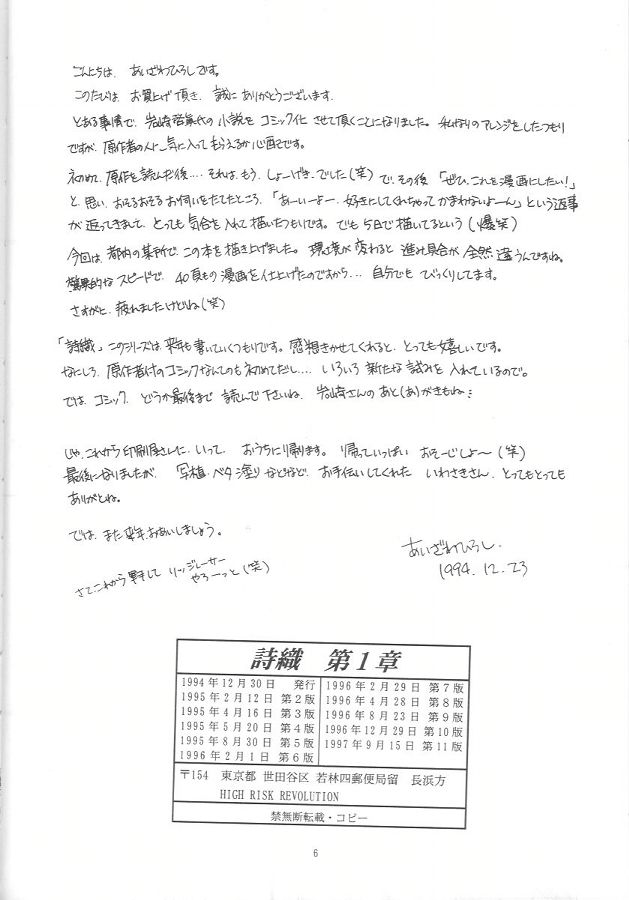 こんにちは、あいざわひろしです。
このたびは、お買上げ頂き、誠にありがとうございます。
とある事情で、岩崎啓眞氏の小説をコミック化させて頂くことになりました。私なりのアレンジをしたつもり
ですが、原作者の人に気に入ってもらえるか心配です。
初めて、原作を読んだ後‥‥それは、もう、しょーげき、でした(笑)で、その後「ぜひ、これを漫画にしたい!」
と、思い、おそるおそるお伺いをたてたところ、「あーいーよー、好きにしてくれちゃってかまわないよーん」という返事
が返ってきまして、とっても気合を入れて描いたつもりです。でも5日で描いてるという(爆笑)
今回は、都内の某所で、この本を描き上げました。環境が変わると進み具合が全然違うんですね。
驚異的なスピードで、40頁もの漫画を仕上げたのですから‥‥自分でもびっくりしてます。
さすがに、疲れましたけどね(笑)
「詩織」このシリーズは、来年も書いていくつもりです。感想きかせてくれると、とっても嬉しいです。
なにしろ、原作者付のコミックなんてのも初めてだし‥‥いろいろ新たな試みを入れているので。
では、コミック、どうか最後まで読んで下さいね、岩崎さんのあと(あ)がきもね
じゃ、これから印刷屋さんに、いって、おうちに帰ります。帰っていっぱいおそーじしよ〜(笑)
最後になりましたが、写植・ベタ塗りなどなど、お手伝いしてくれたいわさきさん、とってもとっても
ありがとね。
では、また来年、おあいしましょう。
さてこれから
リッジレーサー
やろーっと(笑)
あいざわひろし
1994.12.23
詩織 第1章
1994年12月30日 発行
1995年2月12日 第2版
1995年4月16日 第3版
1995年5月20日 第4版
1995年8月30日 第5版
1996年2月1日 第6版
1996年2月29日 第7版
1996年4月28日 第8版
1996年8月23日 第9版
1996年12月29日 第10版
1997年9月15日 第11版
〒154 東京都 世田谷区 若林四郵便局留 長浜方
HIGH RISK REVOLUTION
禁無断転載・コピー
6